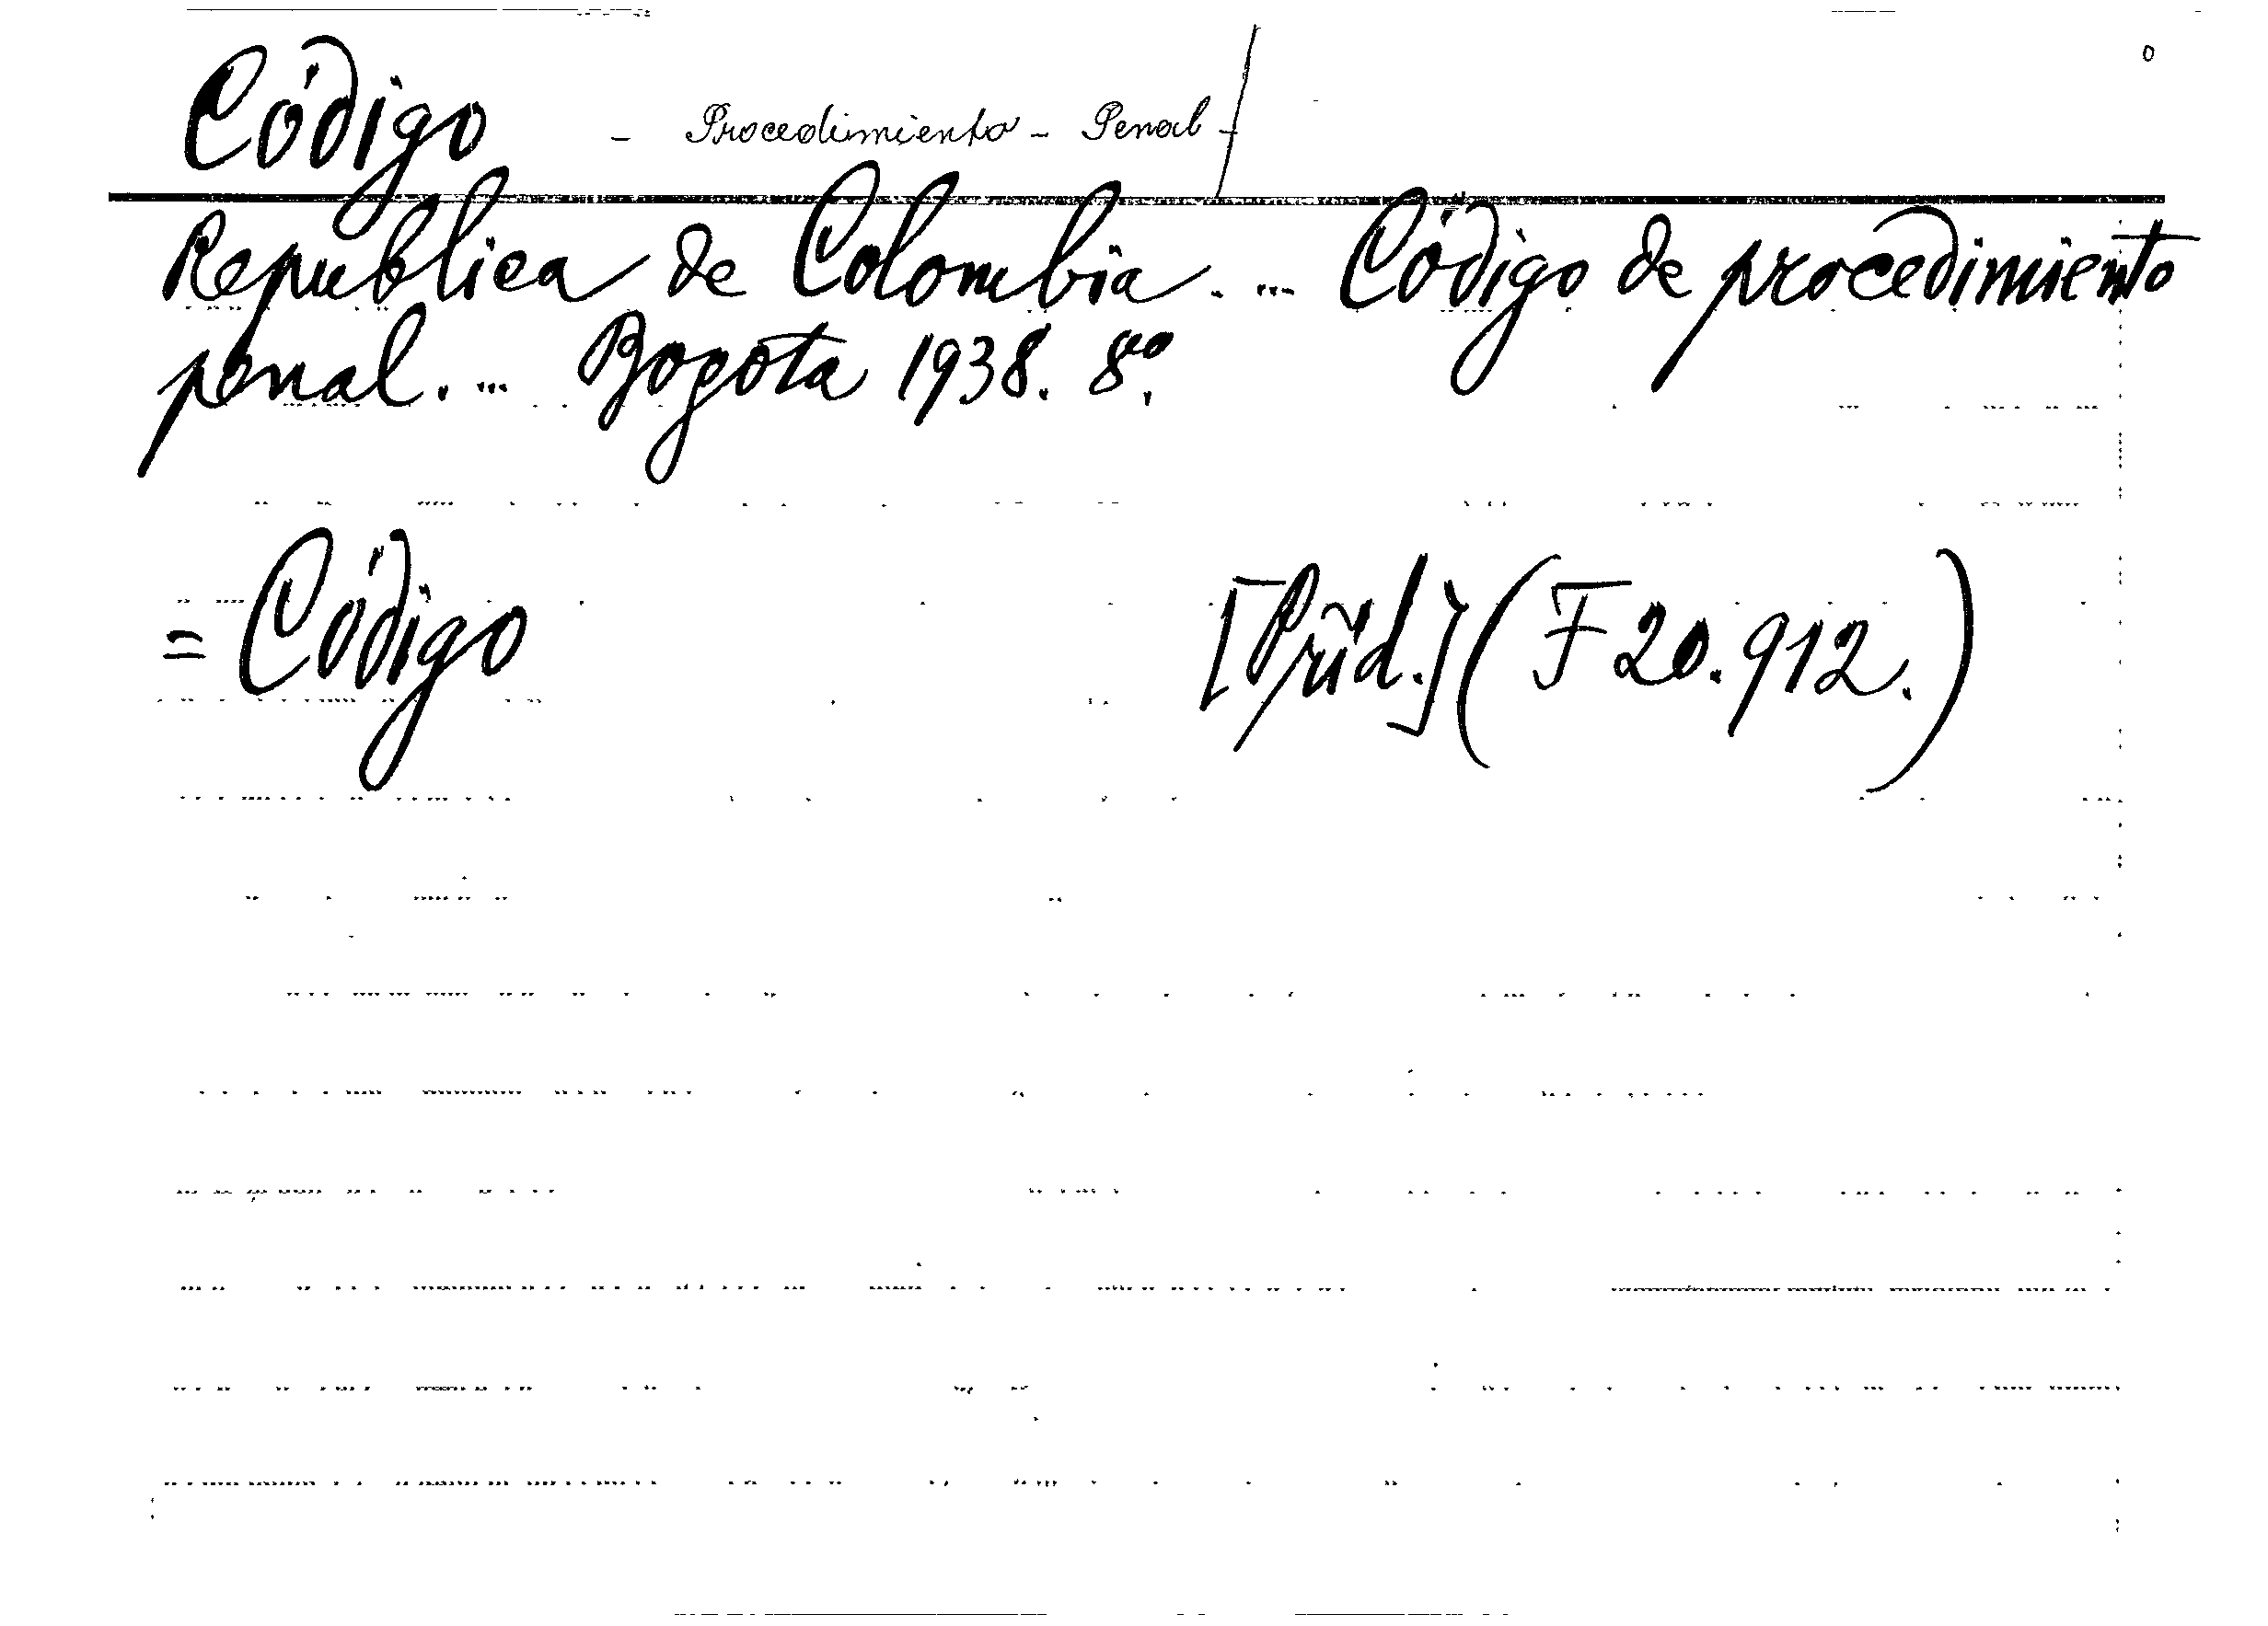 Código - Procedimiento - Penal -
Republica de Colombia. ... Código de procedimiento
penal. ... Bogota 1938. 8vo.
= Código [Prũd.] (F 20.912.)